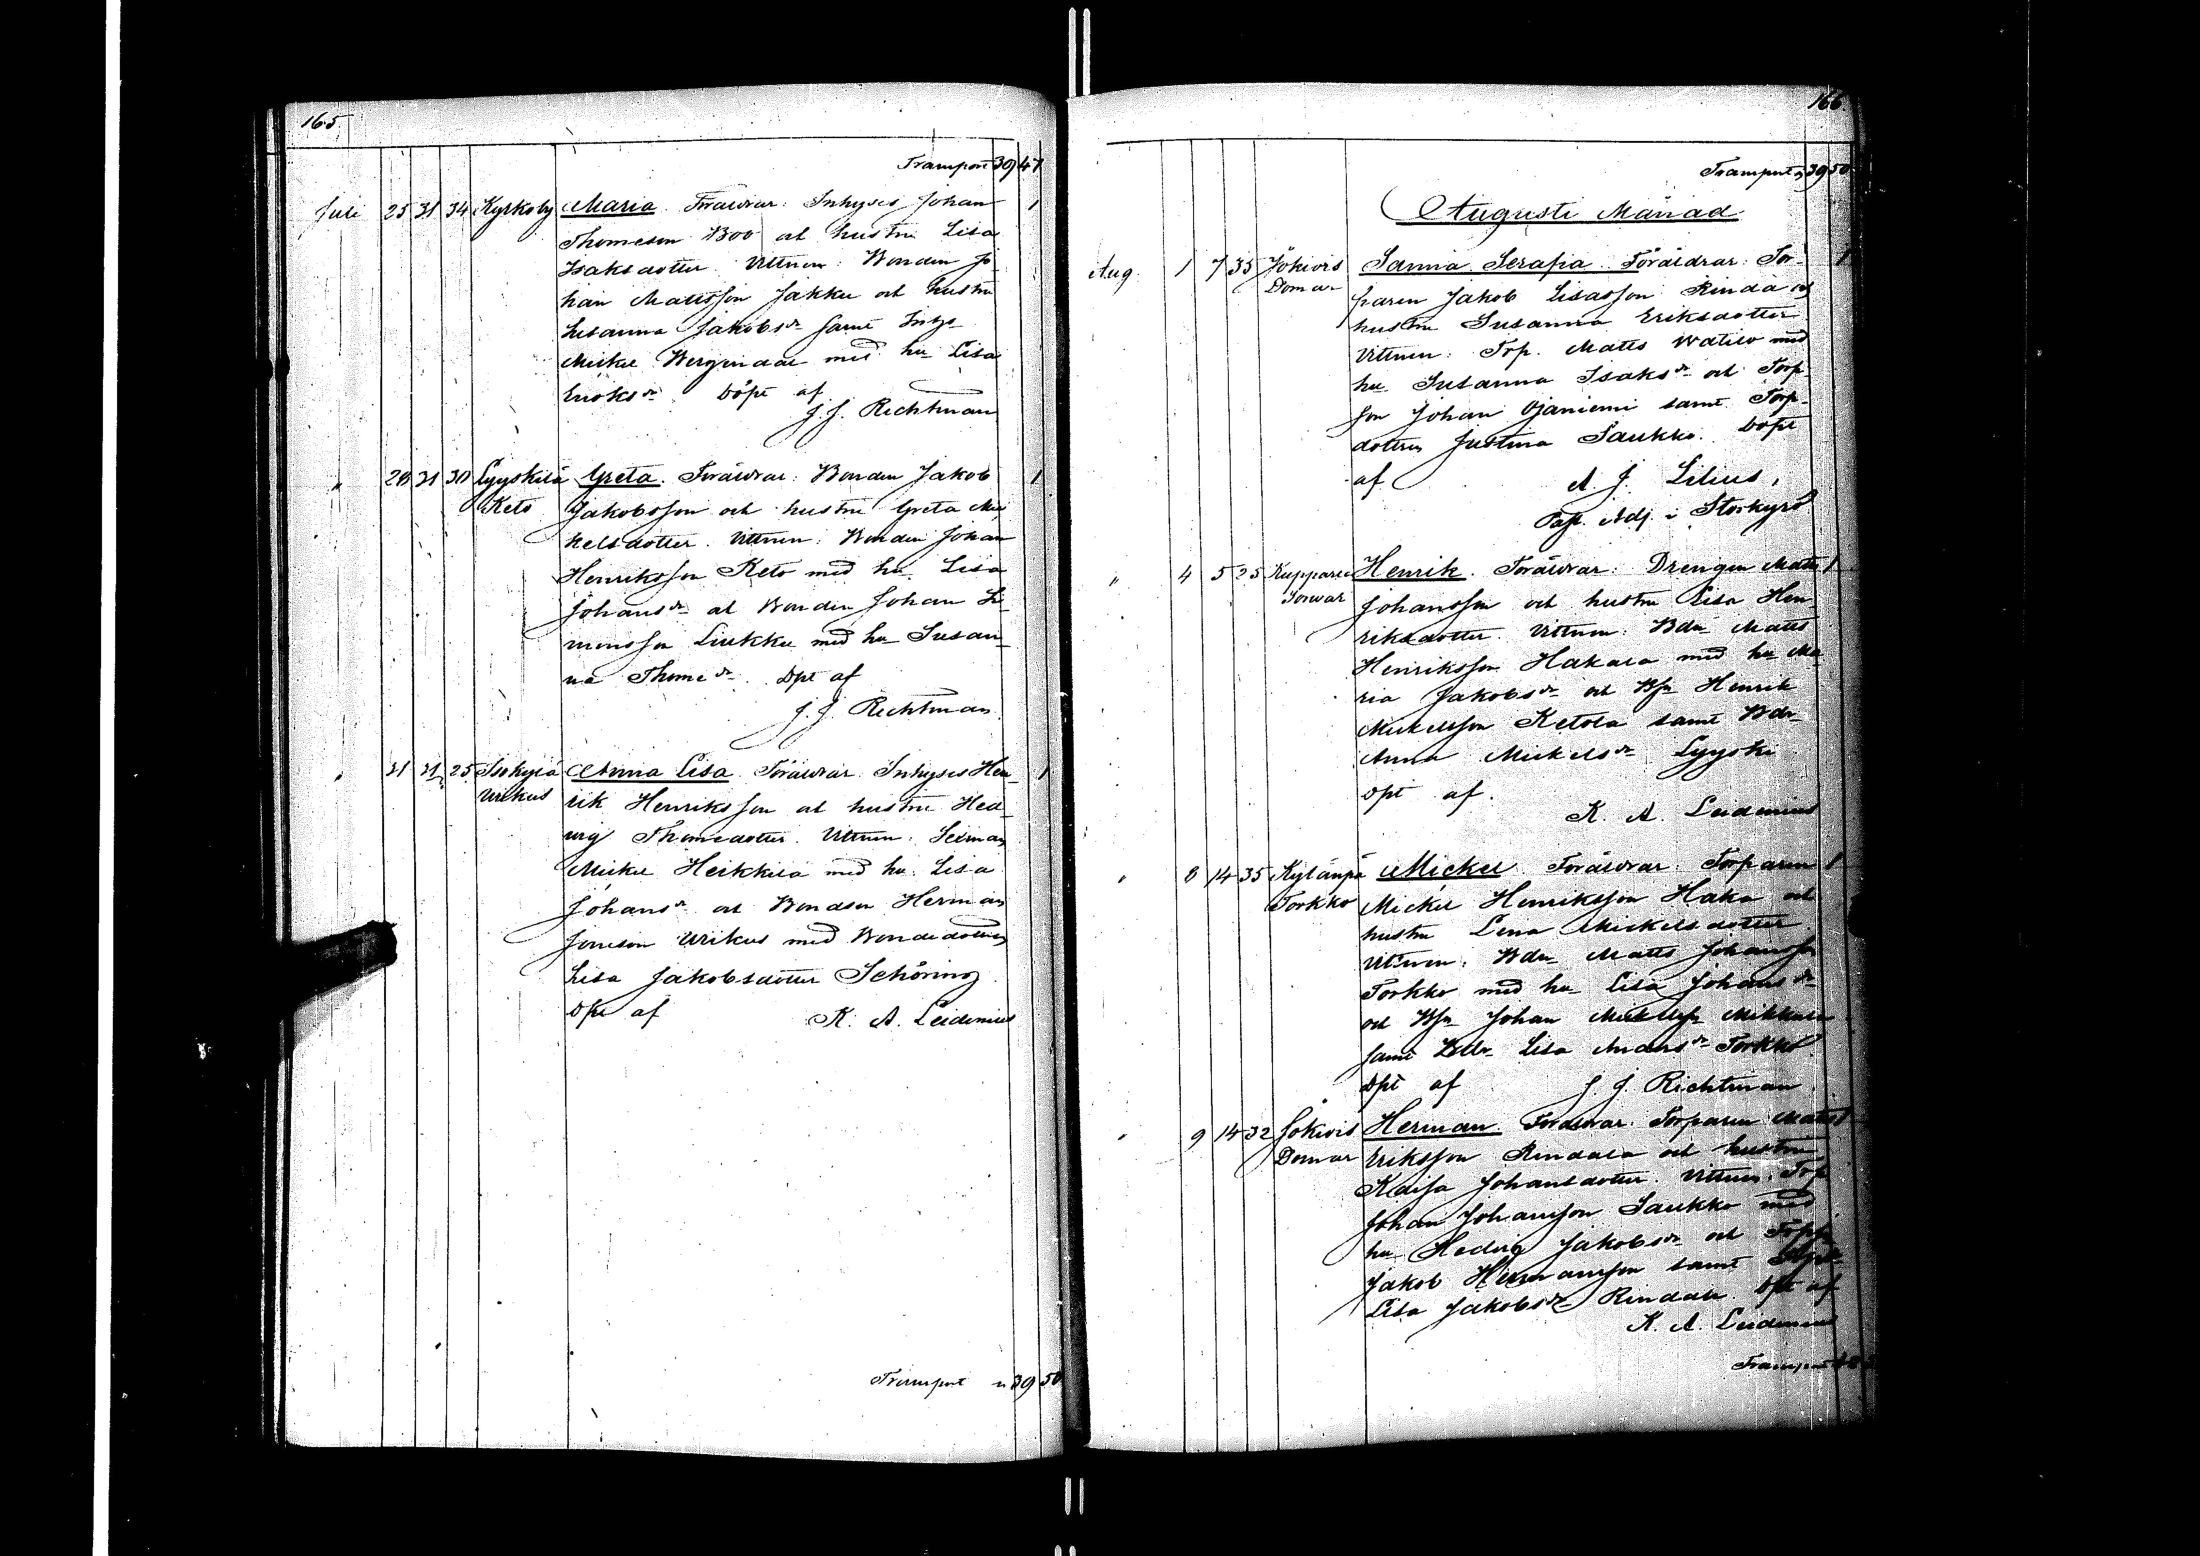 165.
Transport 39 47
Juli 25 31 34 Kyrkoby Maria. Föräldrar: Inhyses Johan 1
Thomeson Boo och hustru Lisa
Isaksdotter. Vittnen: Bonden Jo-
han Mattsson Jakku och hustru
Lisanna Jakobsdr samt Inhys
Mickel Bergendal med hu Lisa
Eriksdr. Döpt af
J. J. Richtman
" 28 31 30 Lyyskilä Greta. Föräldrar: Bonden Jakob 1
Keto Jakobsson och hustru Greta Mic-
kelsdotter. Vittnen: Bonden Johan
Henriksson Keto med hu. Lisa
Johansdr och Bonden Johan Si-
monsson Liukku med hu Susan-
na Thomedr. Dpt af
J. J. Richtman.
" 31 31 25 Isokylä Anna Lisa. Föräldrar: Inhyses Hen- 1
Urikus rik Henriksson och hustru Hed-
vig Thomedotter. Vittnen:
Mickel Heikkilä med hu. Lisa
Johansdr och Bondson Herman
Jonsson Urikus med Bondedottren
Lisa Jakobsdotter Schöring.
Dpt af K. A. Leidenius
Transport 39 50
166.
Transport 39 50
Augusti Månad
Aug. 1 7 35 Jokivis Sanna Serafia. Föräldrar: Tor- 1
Domar paren Jakob Lisasson Rinda och
hustru Susanna Eriksdotter.
Vittnen: Torp. Matts Watilo med
hu Susanna Isaksdr och Torp-
son Johan Ojaniemi samt Torp-
dottren Justina Saukko. Döpt
af A. J. Lilius,
Past. Adj. i Storkyro
" 4 5 25 Kupparla Henrik. Föräldrar: Drengen Matts 1
Torvar Johansson och hustru Lisa Hen-
riksdotter. Vittnen: Bdn Matts
Henriksson Hakala med hu Ma-
ria Jakobsdr och Bsn Henrik
Mickelsson Ketola samt Bdr
Anna Mickelsdr Lyyski
Dpt af.
K. A. Leidenius
" 8 14 35 Kylänpä Mickel. Föräldrar: Torparen 1
Torkko Mickel Henriksson Haka och
hustru Lena Mickelsdotter.
Vittnen: Bdn Matts Johansson
Torkko med hu Lisa Johansdr
och Bsn Johan Mickelss. Mikkala
samt Bdr Lisa Andersdr Torkko.
Dpt af J. J. Richtman.
" 9 14 32 Jokivis Herman. Föräldrar: Torparen Matts 1
Domar Eriksson Rindala och hustru
Kaisa Johansdotter. Vittnen: Torp
Johan Johansson Saukko med
hu Hedvig Jakobsdr och
Jakob Hermansson samt
Lisa Jakobsdr Rindala. Dpt af
K. A. Leidenius
Transport